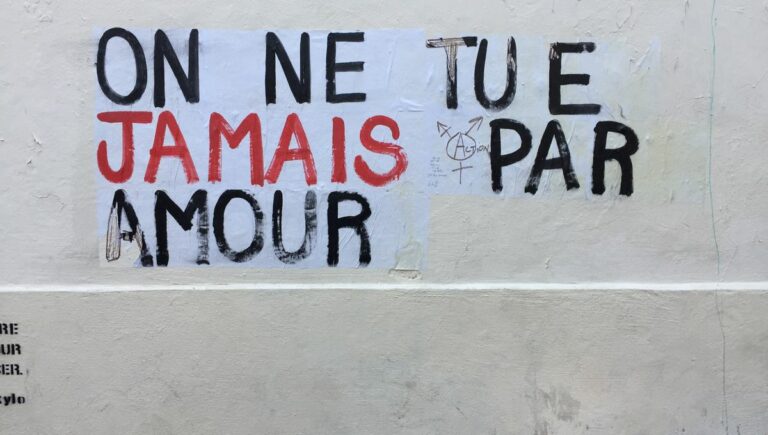 ON NE TUE
JAMAIS PAR
AMOUR
ACTION
RE
UR
ER.